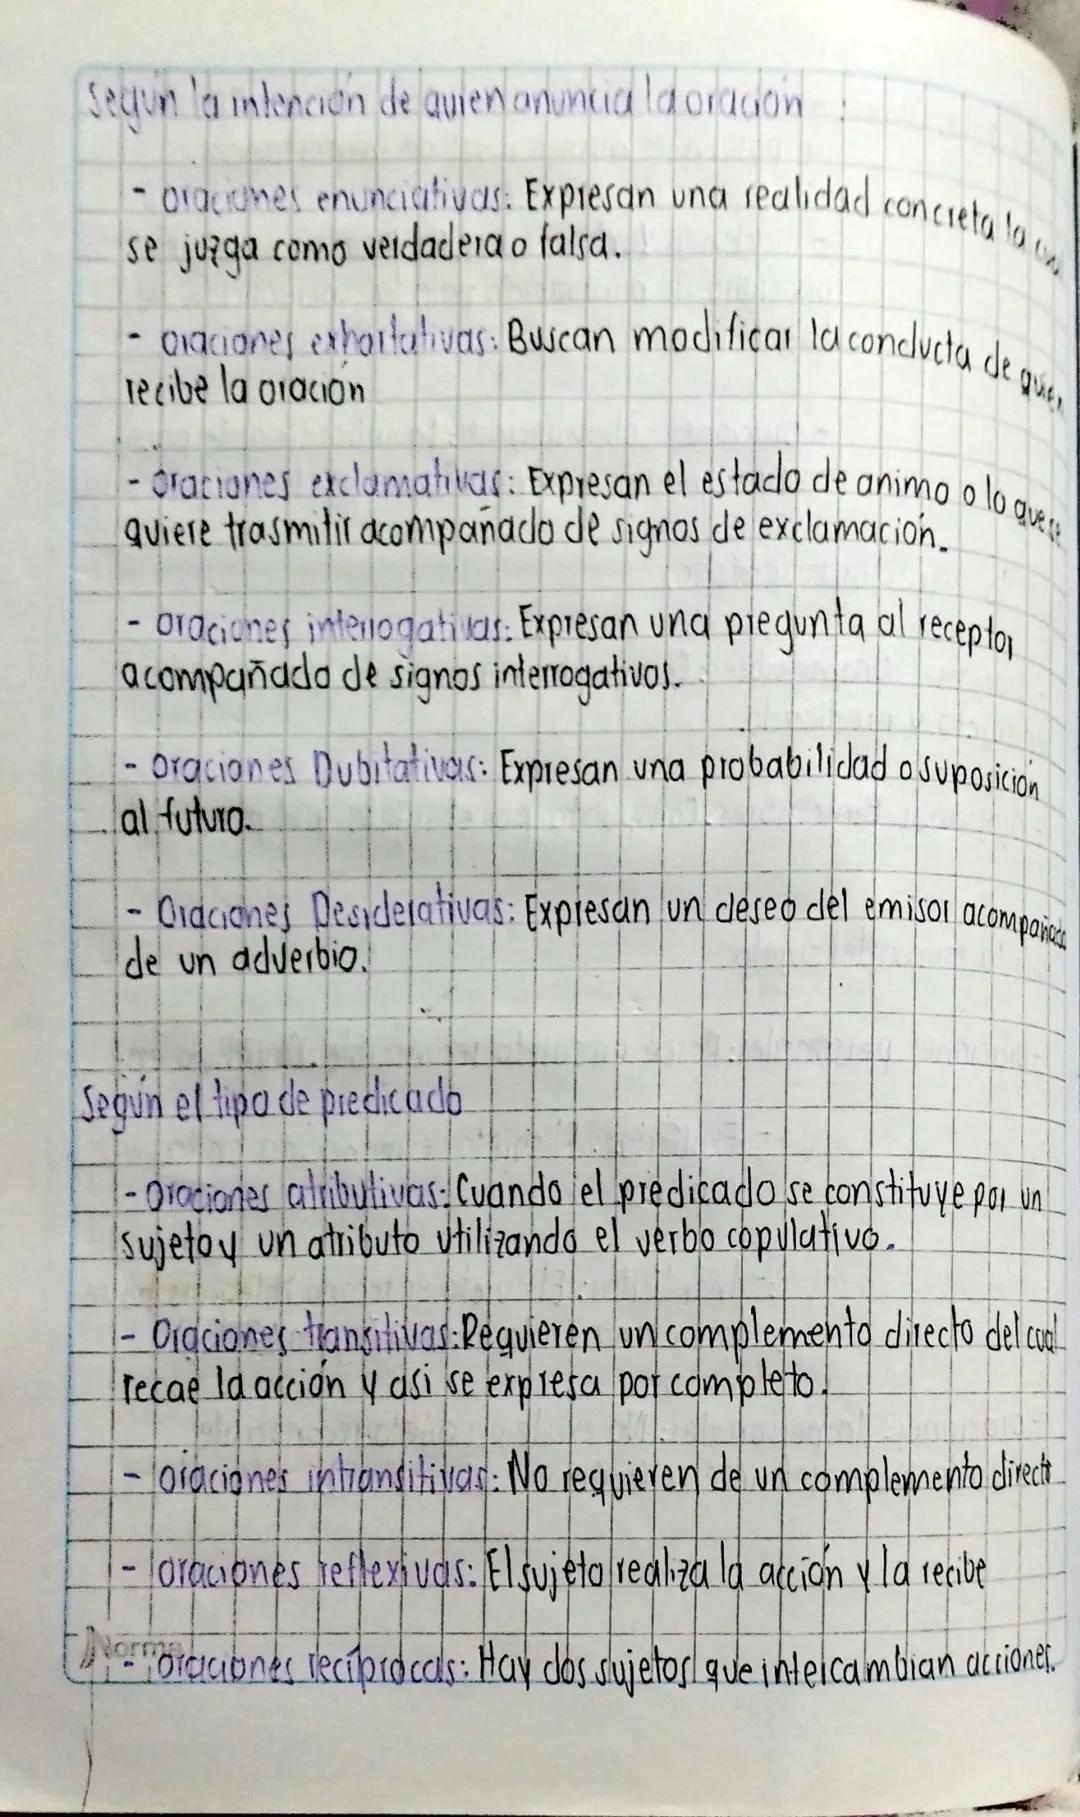 Según la intención de quien anuncia la oración :
- oraciones enunciativas: Expresan una realidad concreta la
se juzga como verdadera o falsa.
- oraciones exhortativas: Buscan modificar la conducta de quien
recibe la oración
- oraciones exclamativas: Expresan el estado de animo o lo que se
quiere trasmitir acompañado de signos de exclamación.
- oraciones interrogativas: Expresan una pregunta al receptor
acompañada de signos interrogativos.
- oraciones Dubitativas: Expresan una probabilidad o suposición
al futuro.
- Oraciones Desiderativas: Expresan un deseo del emisor acompañado
de un adverbio.
Según el tipo de predicado
- oraciones atributivas: Cuando el predicado se constituye por un
sujeto y un atributo utilizando el verbo copulativo.
- Oraciones transitivas: Requieren un complemento directo del cual
recae la acción y asi se expresa por completo.
- oraciones intransitivas: No requieren de un complemento direct
- oraciones reflexivas: El sujeto realiza la acción y la recibe
Norma
- oraciones recíprocas: Hay dos sujetos que intercambian acciones.